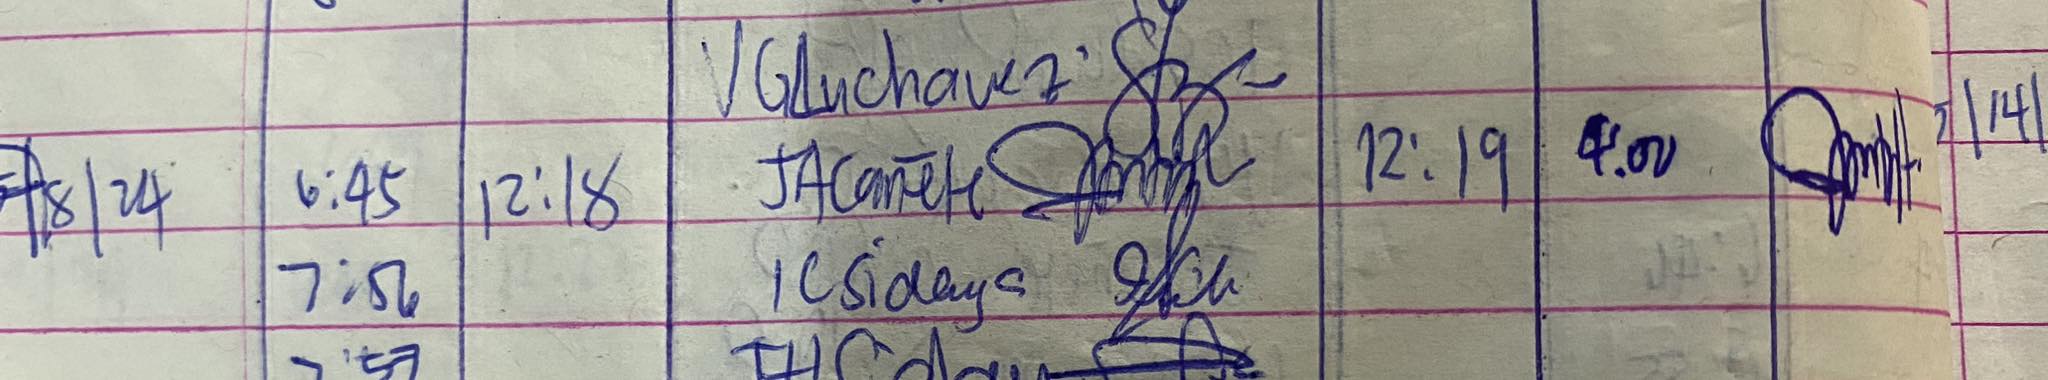 VGLuchavez
/8/24 6:45 12:18 JACañete 12:19 4:00 /14/
7:56 ICSidays
7:57